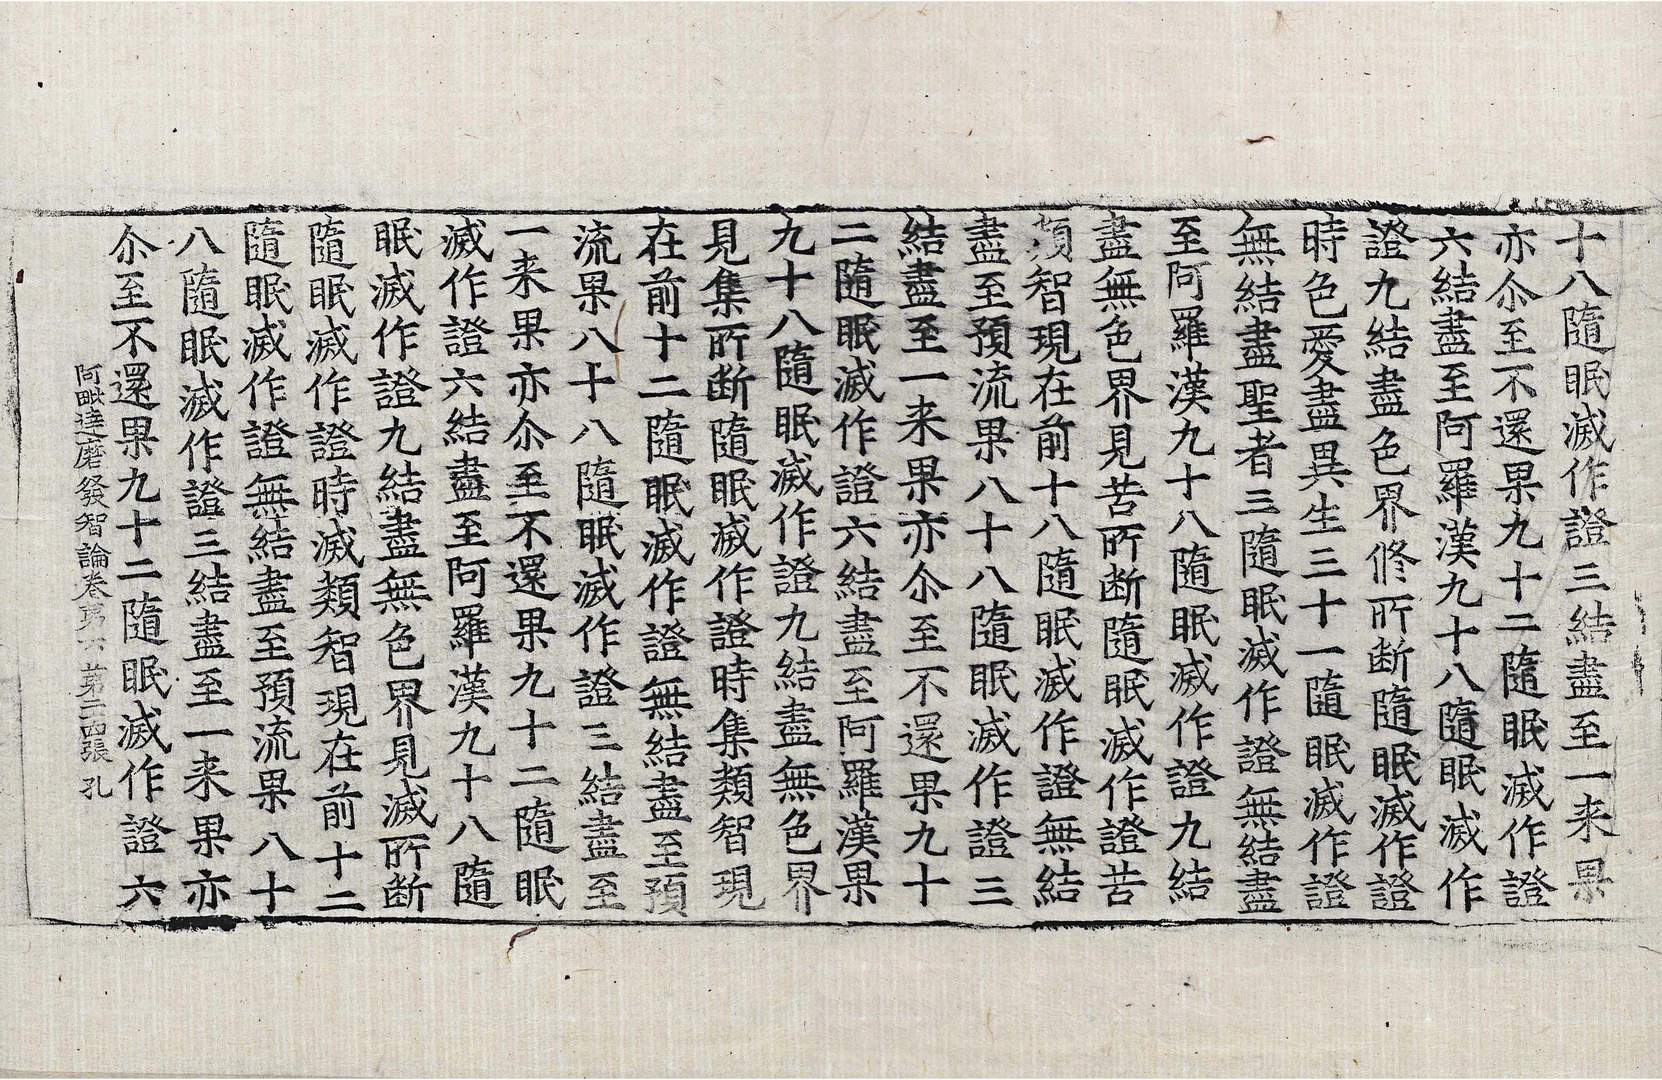 十八隨眠滅作證三結盡至一来果
亦尒至不還果九十二隨眠滅作證
六結盡至阿羅漢九十八隨眠滅作
證九結盡色界修所断隨眠滅作證
時色愛盡異生三十一隨眠滅作證
無結盡聖者三隨眠滅作證無結盡
至阿羅漢九十八隨眠滅作證九結
盡無色界見苦所断隨眠滅作證苦
類智現在前十八隨眠滅作證無結
盡至預流果八十八隨眠滅作證三
結盡至一来果亦尒至不還果九十
二隨眠滅作證六結盡至阿羅漢果
九十八隨眠滅作證九結盡無色界
見集所断隨眠滅作證時集類智現
在前十二隨眠滅作證無結盡至預
流果八十八隨眠滅作證三結盡至
一来果亦尒至不還果九十二隨眠
滅作證六結盡至阿羅漢九十八隨
眠滅作證九結盡無色界見滅所断
隨眠滅作證時滅類智現在前十二
隨眠滅作證無結盡至預流果八十
八隨眠滅作證三結盡至一来果亦
尒至不還果九十二隨眠滅作證六
阿毗達磨發智論卷苐六 苐二四張 孔